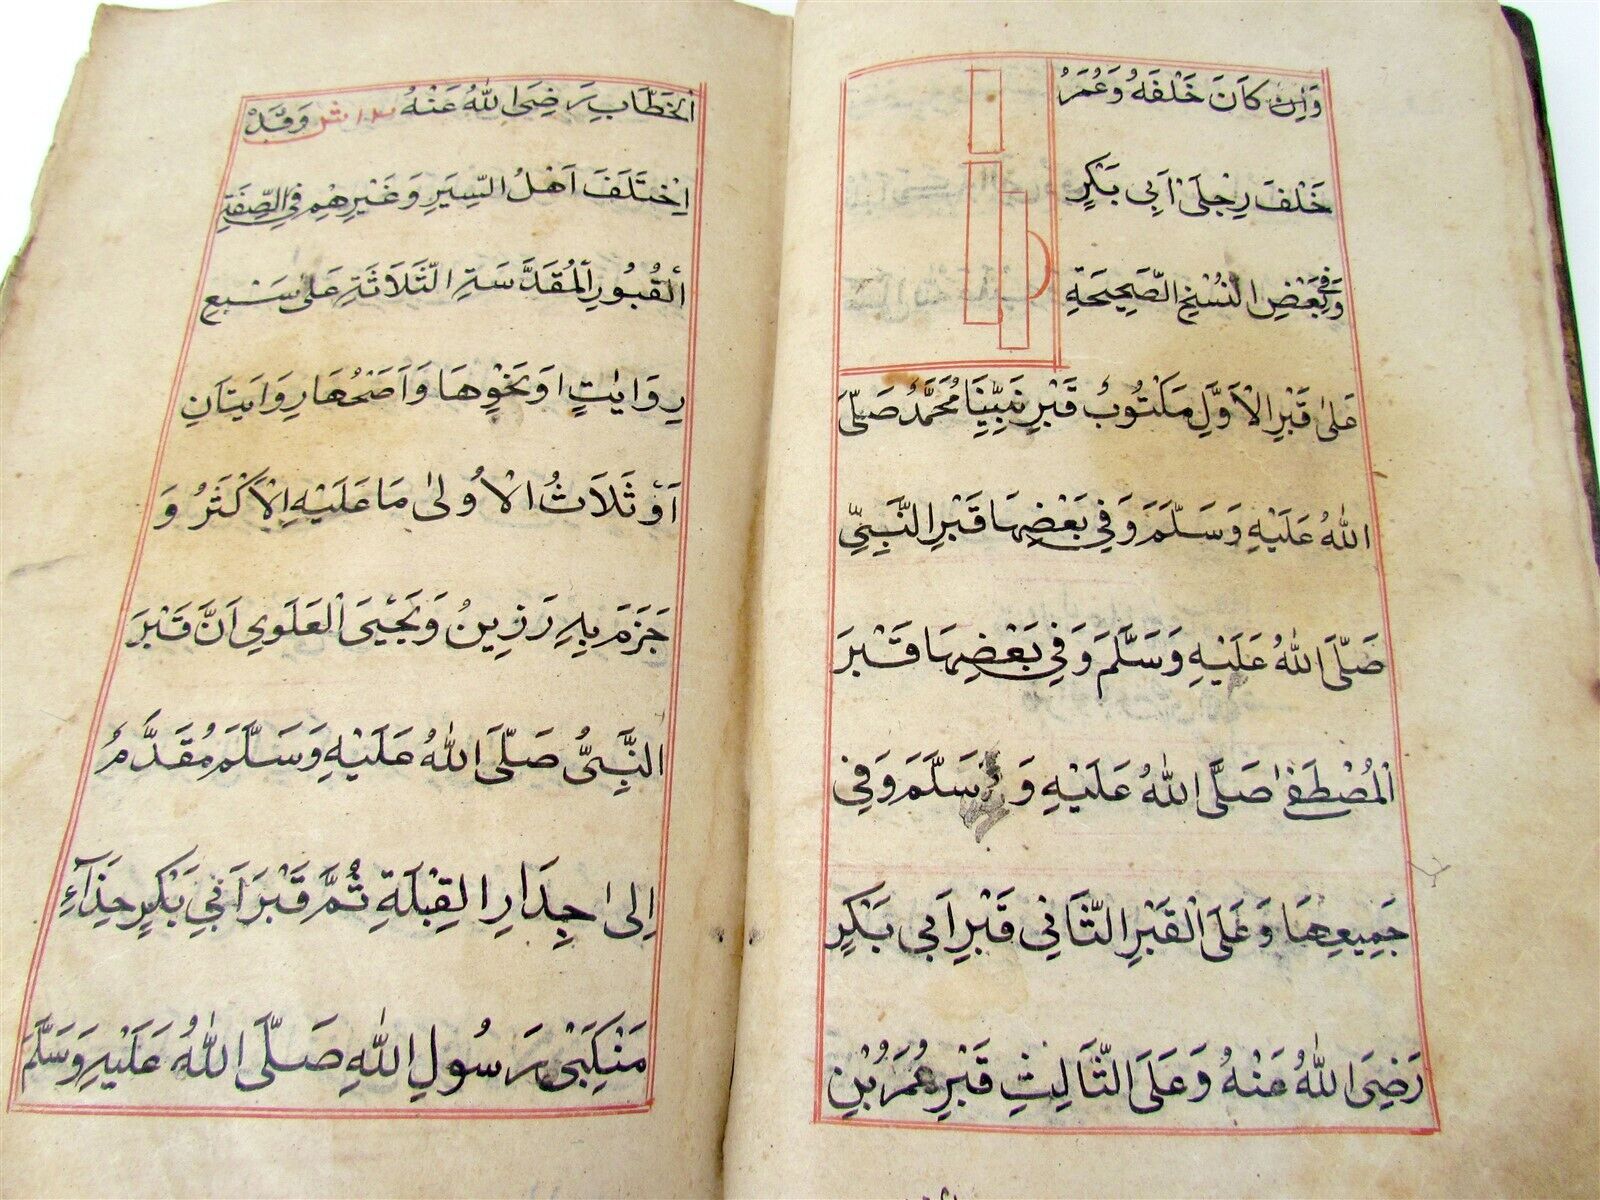 وَاِن كَانَ خَلْفَهُ وَعُمَرُ
خَلْفَ رِجْلَىْ اَبِى بَكْرٍ
وَفِى بَعْضِ النُّسَخِ الصَّحِيحَةِ
عَلىٰ قَبْرِ الْاَوَّلِ مَكْتُوبٌ قَبْرِ نَبِيِّنَا مُحَمَّدٌ صَلَّى
اللّٰهُ عَلَيْهِ وَسَلَّمَ وَفِى بَعْضِهَا قَبْرِ النَّبِيِّ
صَلَّى اللّٰهُ عَلَيْهِ وَسَلَّمَ وَفِى بَعْضِهَا قَبْرَ
الْمُصْطَفٰى صَلَّى اللّٰهُ عَلَيْهِ وَسَلَّمَ وَفِى
جَمِيعِهَا وَعَلَى الْقَبْرِ الثَّانِى قَبْرِ اَبِى بَكْرٍ
رَضِىَ اللّٰهُ عَنْهُ وَعَلَى الثَّالِثِ قَبْرِ عُمَرُ بْنِ
الْخَطَّابِ رَضِىَ اللّٰهُ عَنْهُ وَقَدْ
اِخْتَلَفَ اَهْلُ السِّيَرِ وَغَيْرِهِمْ فِى الصِّفَةِ
الْقُبُورِ الْمُقَدَّسَةِ الثَّلَاثَةِ عَلىٰ سَبْعِ
رِوَايٰتٍ اَوْ نَحْوِهَا وَاَصَحُّهَا رِوَايَتَانِ
اَوْ ثَلَاثُ الْاُولىٰ مَا عَلَيْهِ الْاَكْثَرُ وَ
جَزَمَ بِهِ رَزِينُ وَيَحْيَى الْعَلَوِى اَنَّ قَبْرَ
النَّبِىُّ صَلَّى اللّٰهُ عَلَيْهِ وَسَلَّمَ مُقَدَّمٌ
اِلىٰ جِدَارِ الْقِبْلَةِ ثُمَّ قَبْرَ اَبِى بَكْرٍ حِذَآءِ
مَنْكِبَىْ رَسُولِ اللّٰهِ صَلَّى اللّٰهُ عَلَيْهِ وَسَلَّمَ